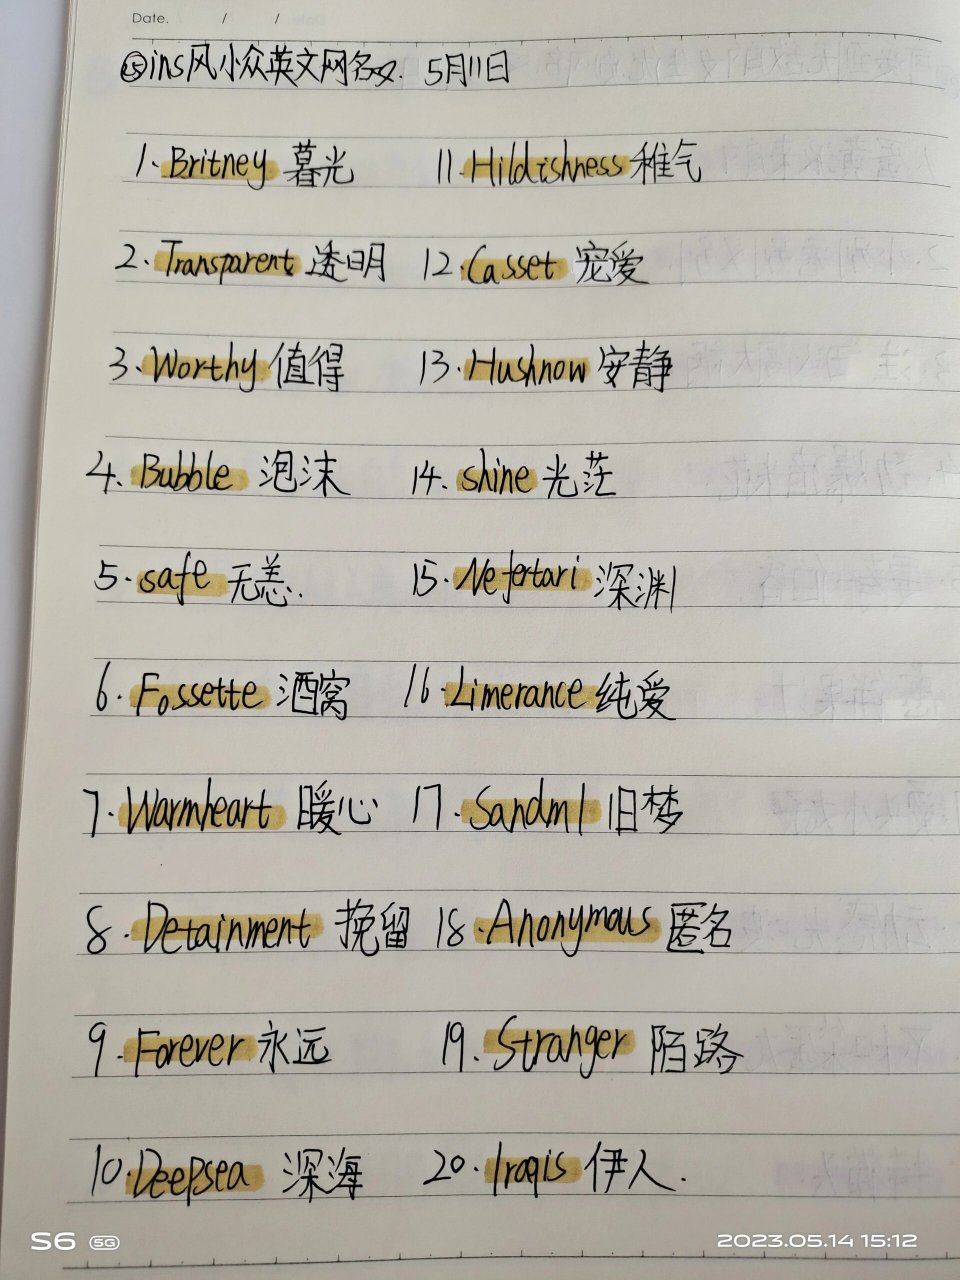 Date. / /
㉕ins风小众英文网名. 5月11日
1. Britney 暮光 11. Hildishness 稚气
2. Transparent 透明 12. Casset 宠爱
3. Worthy 值得 13. Hushnow 安静
4. Bubble 泡沫 14. shine 光茫
5. safe 无恙. 15. Nefertari 深渊
6. Fossette 酒窝 16. Limerance 纯爱
7. Warmheart 暖心 17. Sandml 旧梦
8. Detainment 挽留 18. Anonymous 匿名
9. Forever 永远 19. Stranger 陌路
10. Deepsea 深海 20. Iraqis 伊人.
S6 5G 2023.05.14 15:12